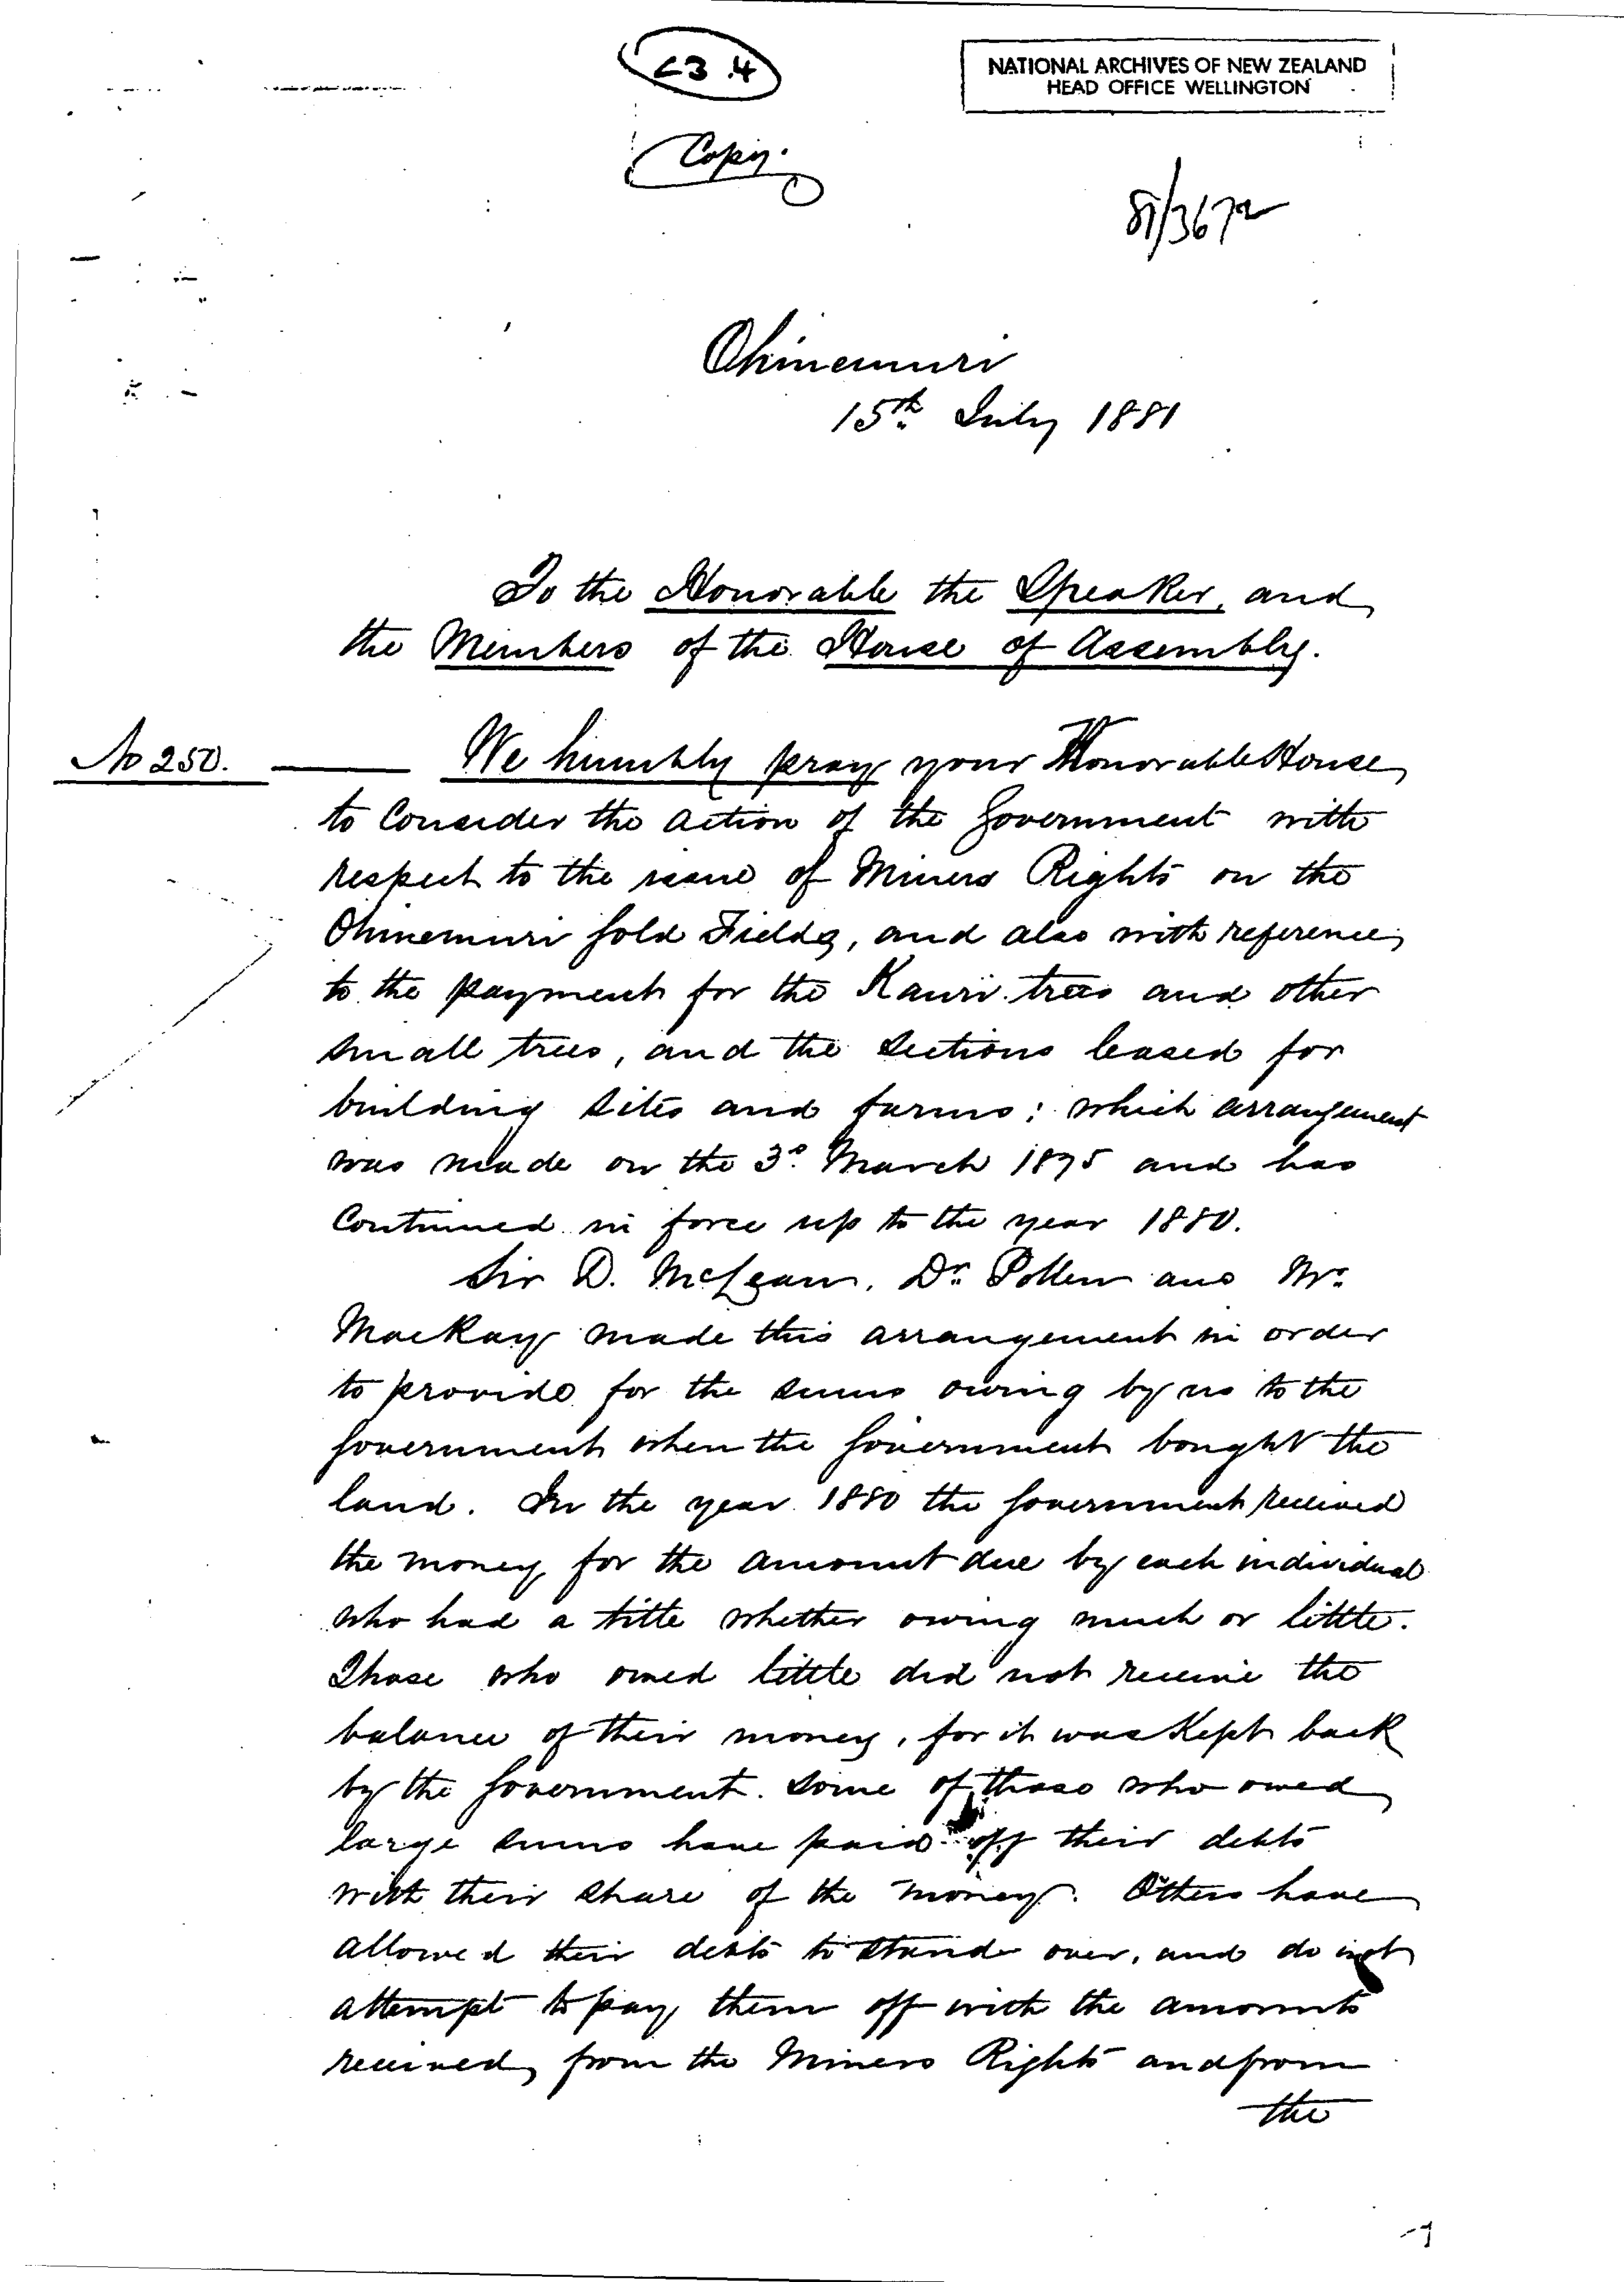 23.4
NATIONAL ARCHIVES OF NEW ZEALAND
HEAD OFFICE WELLINGTON
Copy.
81/3672
Ohinemuri
15th July 1881
To the Honorable the Speaker, and
the Members of the House of Assembly.
No 250.
We humbly pray your Honorable House
to Consider the action of the Government with
respect to the issue of Miners Rights on the
Ohinemuri Gold Fields, and also with reference
to the payment for the Kauri trees and other
small trees, and the sections leased for
building sites and farms; which arrangement
was made on the 3d March 1875 and has
Continued in force up to the year 1880.
Sir D. McLean, Dr. Pollen and Mr.
MacKay made this arrangement in order
to provide for the sums owing by us to the
Government when the Government bought the
land. In the year 1880 the Government received
the money for the amount due by each individual
who had a title whether owing much or little.
Those who owed little did not receive the
balance of their money, for it was Kept back
by the Government. Some of those who owed
large sums have paid off their debts
with their share of the money. Others have
allowed their debts to stand over, and do not
attempt to pay them off with the amounts
received from the Miners Rights and from
the